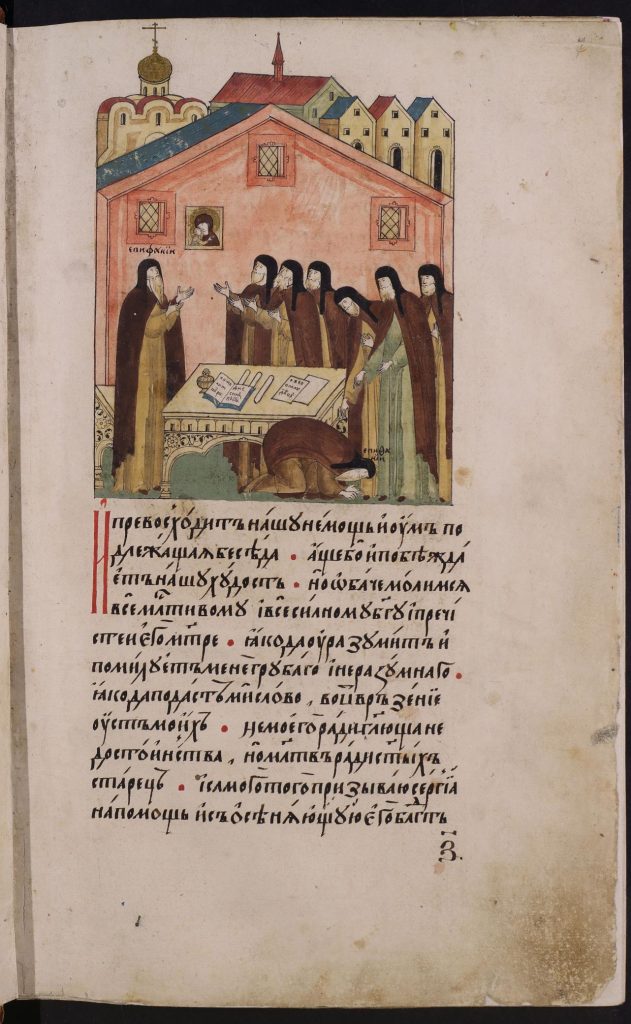 епифа́нїи
епифа
нїи
И҆превосхо́дитъ на́шу не́мощь и҆ оу҆́мъ по
длежа́щаѧ бесѣ́да . а҆́ще бо и҆ побѣжда́
етъ на́шу хꙋ́дость . но ѻ҆ба́че мо́лимсѧ
всемл҃тивому і҆ всеси́лному бг҃ꙋ и҆ пречи́
стеи е҆го̀ мт҃ре . ꙗ҆́ко да оу҆разумитъ и҆
поми́луетъ менѐ грꙋ́баго і҆ неразꙋ́мнаго .
ꙗ҆́ко да пода́стъ ми сло́во , во ѿве́рзенїе
оу҆́стъ мои́хъ . не моего̀ ра́ди гл҃ю́ща не
досто́инства , но мл҃твъ ра́ди ст҃ы́хъ
ста́рецъ . і҆ самого̀ того̀ призыва́ю се́ргїа
на по́мощь и҆ съ ѡ҆сѣнѧ́ющую е҆го̀ бл҃гть
в҃